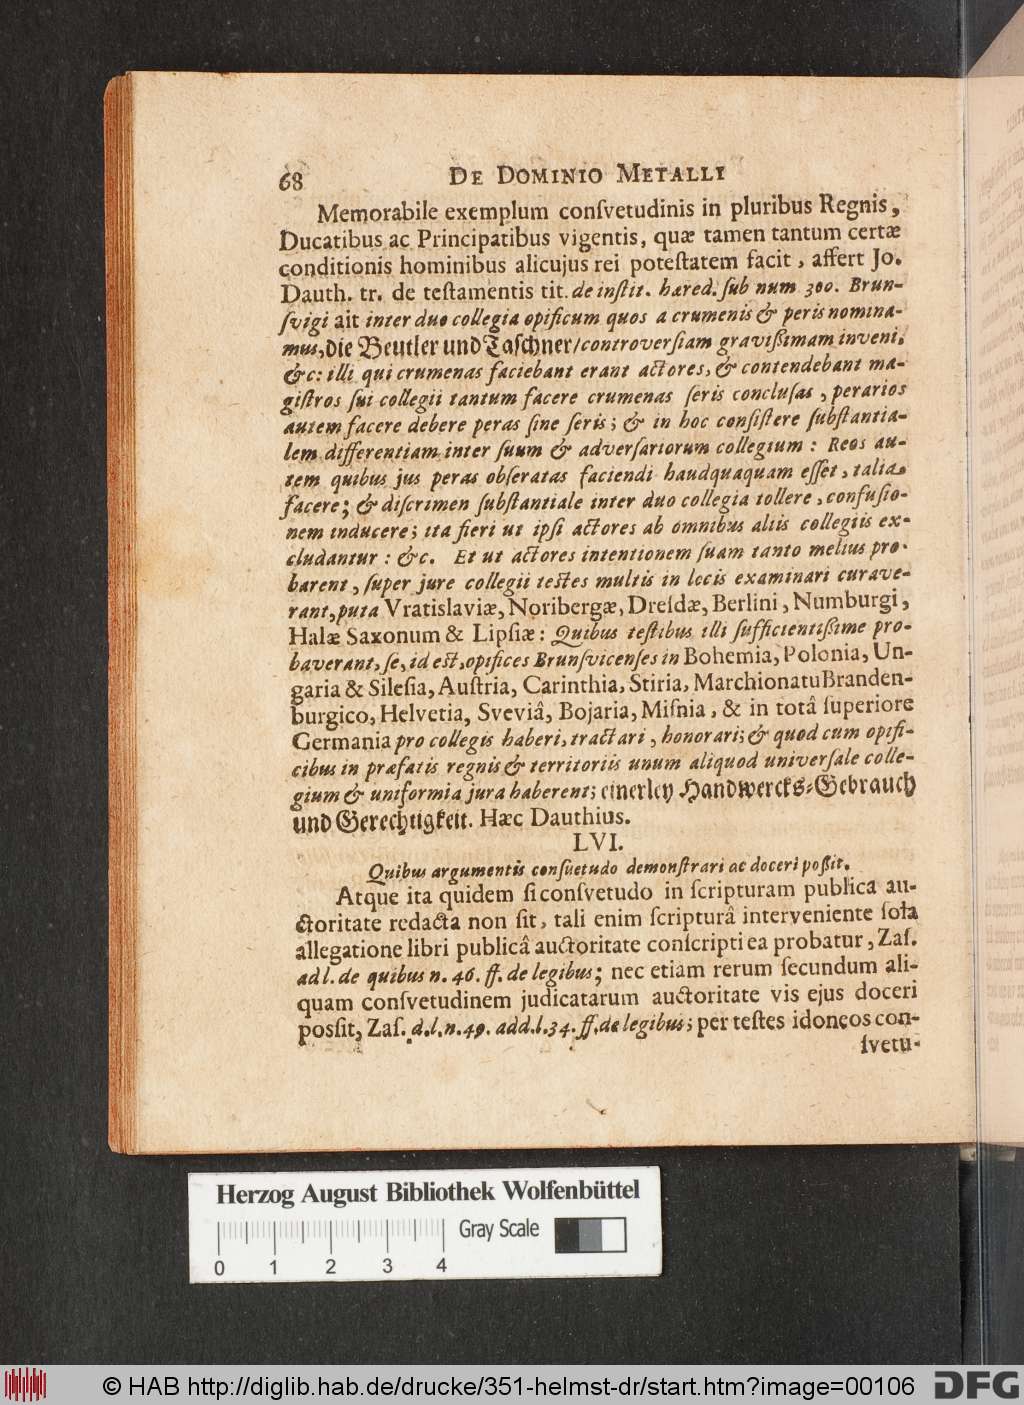 68 DE DOMINIO METALLI
Memorabile exemplum conſvetudinis in pluribus Regnis,
Ducatibus ac Principatibus vigentis, quæ tamen tantum certæ
conditionis hominibus alicujus rei poteſtatem facit, affert Jo.
Dauth. tr. de teſtamentis tit. de inſtit. hæred. ſub num 300. Brun-
ſvigi ait inter duo collegia opificum quos a crumenis & peris nomina-
mus, die Beutler und Taſchner/ controverſiam gravißimam inveni.
&c: illi qui crumenas faciebant erant actores, & contendebant ma-
giſtros ſui collegii tantum facere crumenas ſeris concluſas, perarios
autem facere debere peras ſine ſeris; & in hoc conſiſtere ſubſtantia-
lem differentiam inter ſuum & adverſariorum collegium: Reos au-
tem quibus jus peras obſeratas faciendi haudquaquam eſſet, talia
facere; & diſcrimen ſubſtantiale inter duo collegia tollere, confuſio-
nem inducere; ita fieri ut ipſi actores ab omnibus aliis collegiis ex-
cludantur: &c. Et ut actores intentionem ſuam tanto melius pro-
barent, ſuper jure collegii testes multis in locis examinari curave-
rant, puta Vratislaviæ, Noribergæ, Dreſdæ, Berlini, Numburgi,
Halæ Saxonum & Lipſiæ: Quibus teſtibus illi ſufficientißime pro-
baverant, ſe, id est, opifices Brunſvicenſes in Bohemia, Polonia, Un-
garia & Sileſia, Auſtria, Carinthia, Stiria, Marchionatu Branden-
burgico, Helvetia, Sveviâ, Bojaria, Miſnia, & in totâ ſuperiore
Germania pro collegis haberi, tractari, honorari; & quod cum opifi-
cibus in præfatis regnis & territoriis unum aliquod univerſale colle-
gium & uniformia jura haberent; einerley Handwercks-Gebrauch
und Gerechtigkeit. Hæc Dauthius.
LVI.
Quibus argumentis conſuetudo demonſtrari ac doceri poßit.
Atque ita quidem ſi conſvetudo in ſcripturam publica au-
ctoritate redacta non ſit, tali enim ſcripturâ interveniente ſola
allegatione libri publicâ auctoritate conſcripti ea probatur, Zaſ.
ad l. de quibus n. 46. ff. de legibus; nec etiam rerum ſecundum ali-
quam conſvetudinem judicatarum auctoritate vis ejus doceri
possit, Zaſ. d. l. n. 49. add. l. 34. ff. de legibus; per teſtes idoneos con-
ſvetu-
Herzog August Bibliothek Wolfenbüttel
Gray Scale
0 1 2 3 4
© HAB http://diglib.hab.de/drucke/351-helmst-dr/start.htm?image=00106
DFG